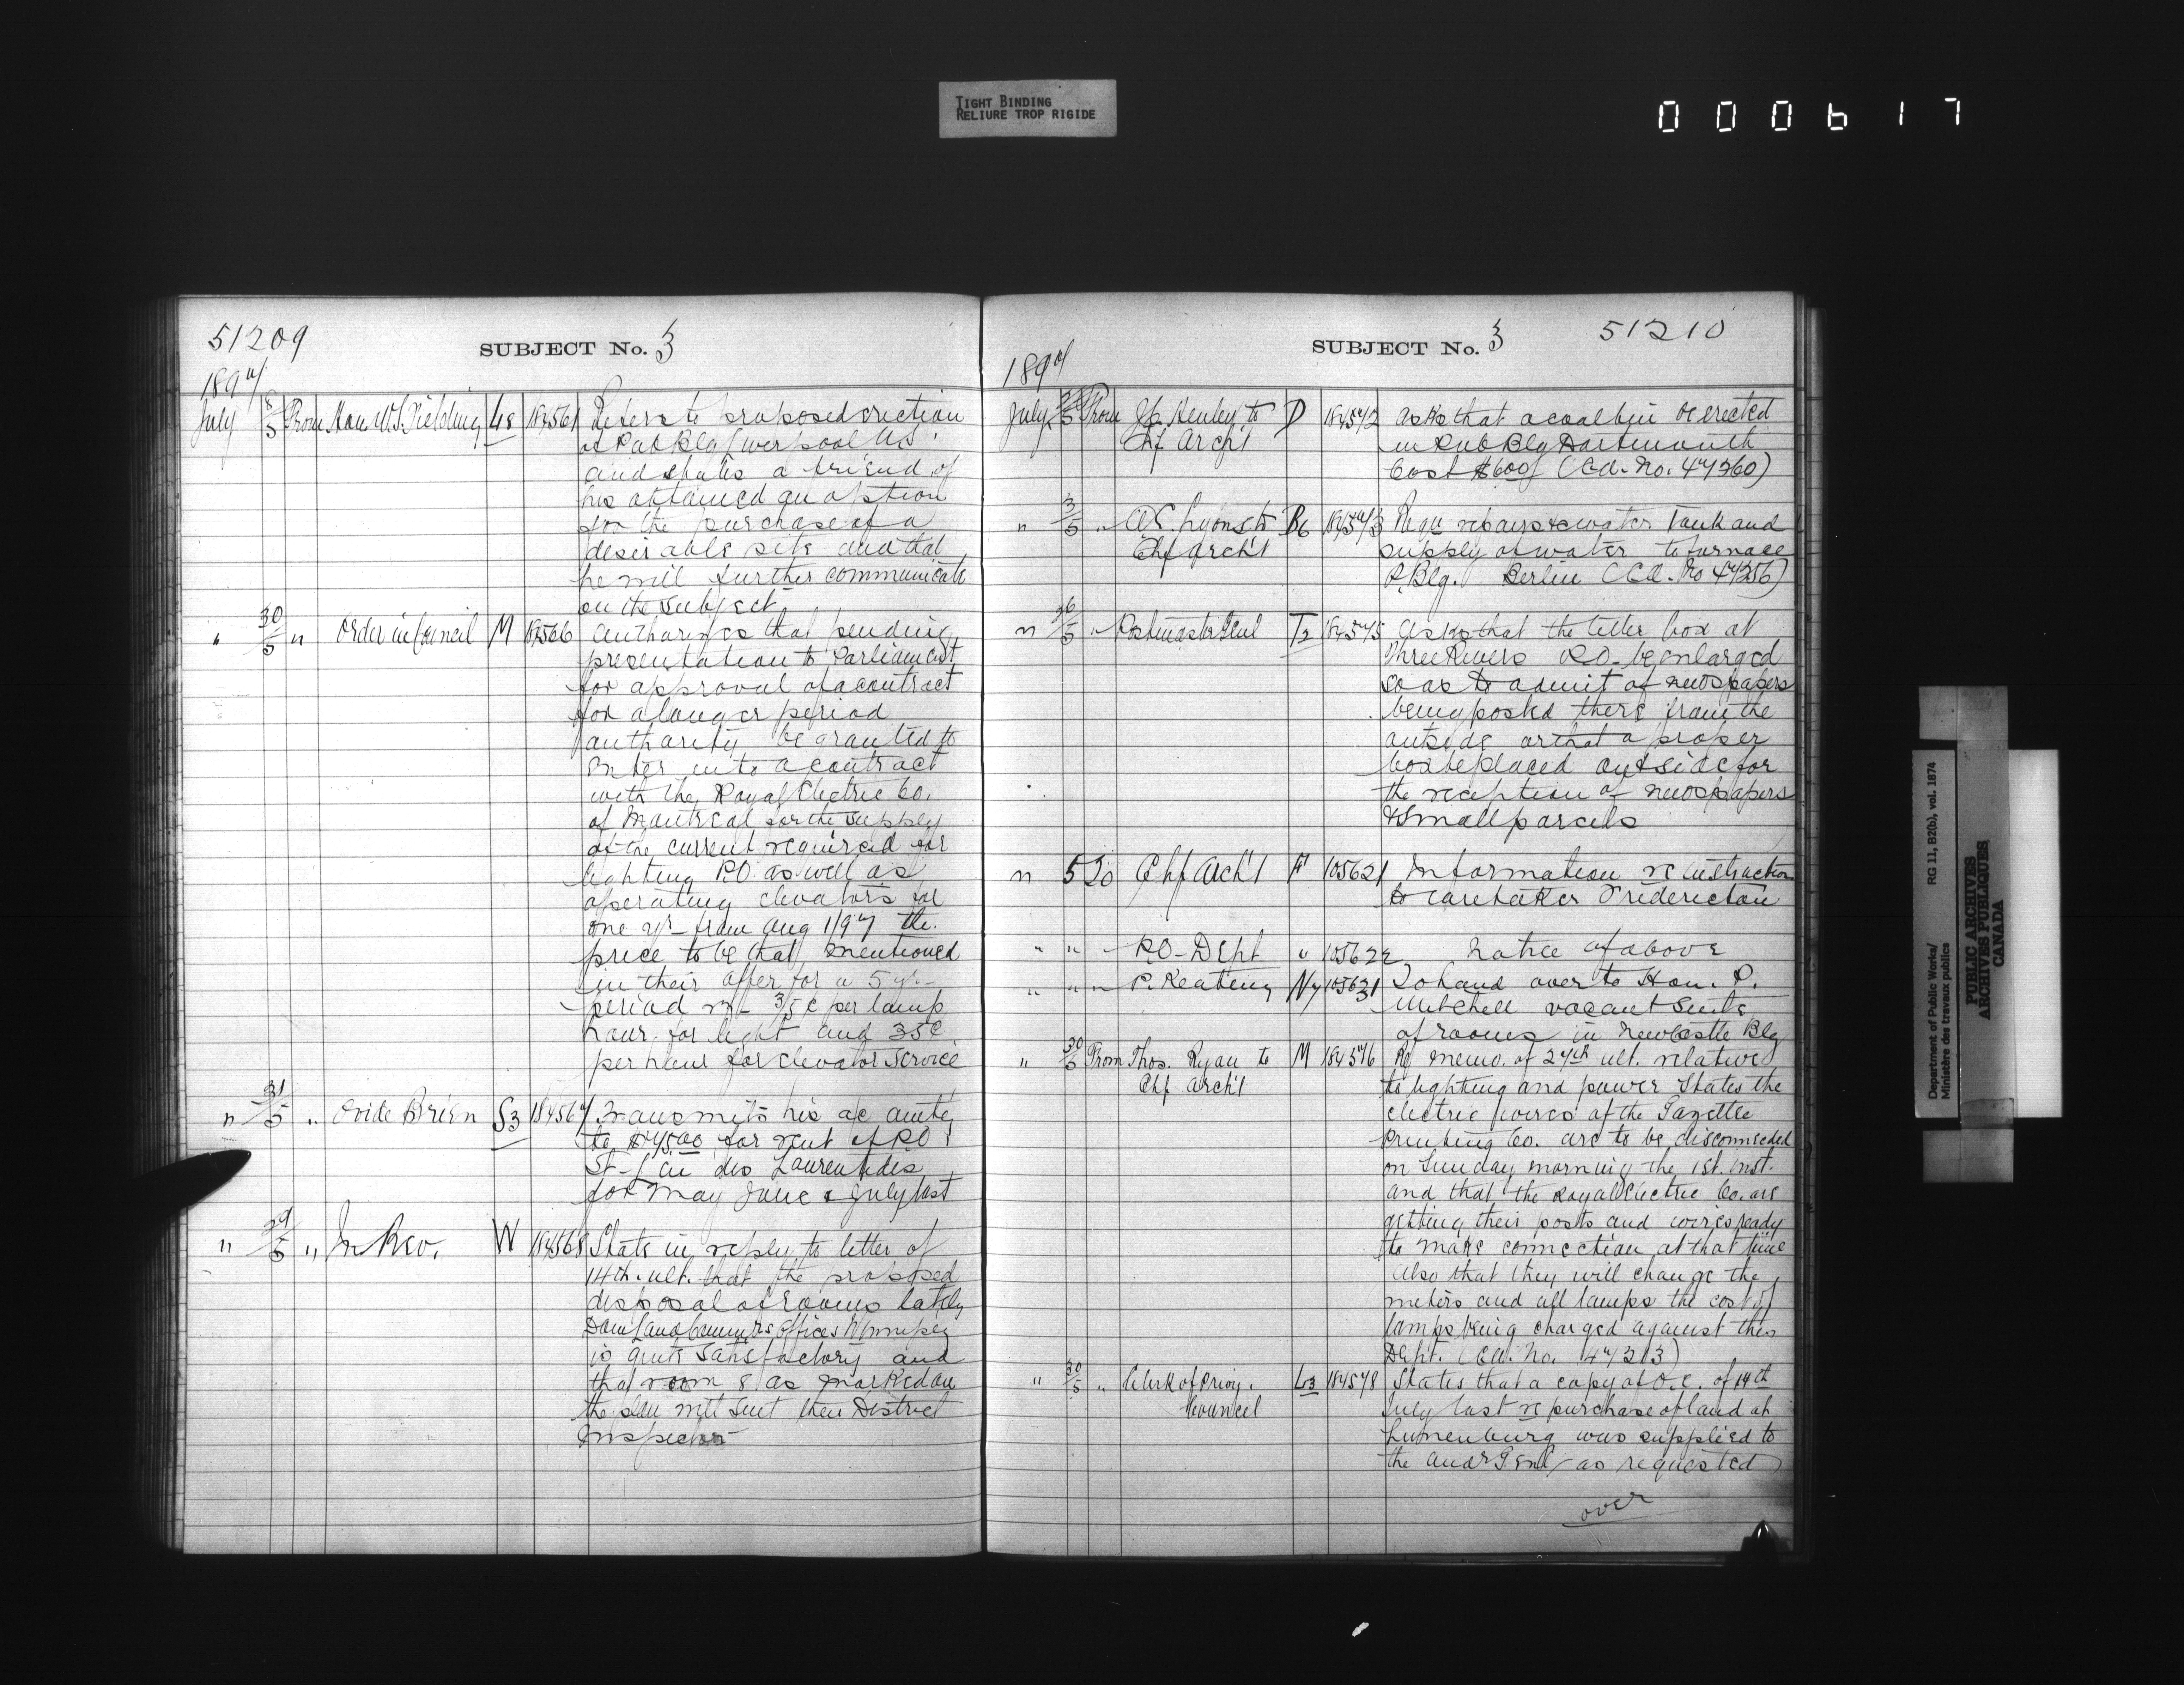 TIGHT BINDING
RELIURE TROP RIGIDE
000617
51209
SUBJECT No. 3
1897
July 3/5 From Hon W.S. Fielding L8 184561 Refers to proposed erection
of Pub Blg Liverpool N.S.
and states a friend of
his obtained an option
for the purchase of a
desirable site and that
he will further communicate
on the subject
" 30/5 " Order in Council M 184566 Authorizes that pending
presentation to Parliament
for approval of a contract
for a longer period
authority be granted to
enter into a contract
with the Royal Electric Co.
of Montreal for the supply
of the current required for
lighting P.O. as well as
operating elevators for
one yr from Aug 1/97 the
price to be that mentioned
in their offer for a 5 yr
period 3/5 c per lamp
hour for light and 35c
per hour for elevator service
" 31/5 " Ovide Brien S3 184567 Transmits his a/c amtg
to $75.00 for rent of P.O.
St-Lin des Laurentides
for May June & July last
" 29/5 " In Rev. W 184568 State in reply to letter of
14th. ult. that the proposed
disposal of rooms lately
Dom Land Commrs Offices Winnipeg
is quite satisfactory and
that room 8 as marked on
the plan will suit their District
Inspector
SUBJECT No. 3
51210
1897
July 5 From Jp. Henley to D 184572 asks that a coal bin be erected
Chf Arch't in Pub Blg Dartmouth
Cost $600 (Cd. No. 47260)
" 3/5 " A.C. Lyons to B6 184573 Requ repairs to water Tank and
Chf Arch't supply of water to furnace
P. Blg. Berlin (Cd. No 47256)
" 26/5 " Postmaster Genl T2 184575 asks that the letter box at
Three Rivers P.O. be enlarged
so as to admit of newspapers
being posted there from the
outside or that a proper
box be placed outside for
the reception of newspapers
& small parcels
" 5 To Chf Arch't F 105621 Information re instruction
to caretaker Fredericton
" " " P.O. Dept " 105622 Notice of above
" " " P. Keating N7 105631 To hand over to Hon. P.
Mitchell vacant suite
of rooms in Newcastle Blg
" 30/5 From Thos. Ryan to M 184576 Re memo. of 27th ult. relative
Chf Arch't to lighting and power States the
electric wires of the Gazette
Printing Co. are to be disconnected
on Sunday morning the 1st. inst.
and that the Royal Electric Co. are
getting their posts and wires ready
to make connection at that time
Also that they will change the
meters and all lamps the cost of
lamps being charged against this
Dept. (Cd. No. 47213)
" 30/5 " Clerk of Privy L3 184578 States that a copy of O.C. of 14th
Council July last re purchase of land at
Lunenburg was supplied to
the Audr Genl as requested
over
Department of Public Works/ RG 11, B2(b), vol. 1874
Ministère des travaux publics
PUBLIC ARCHIVES
ARCHIVES PUBLIQUES
CANADA